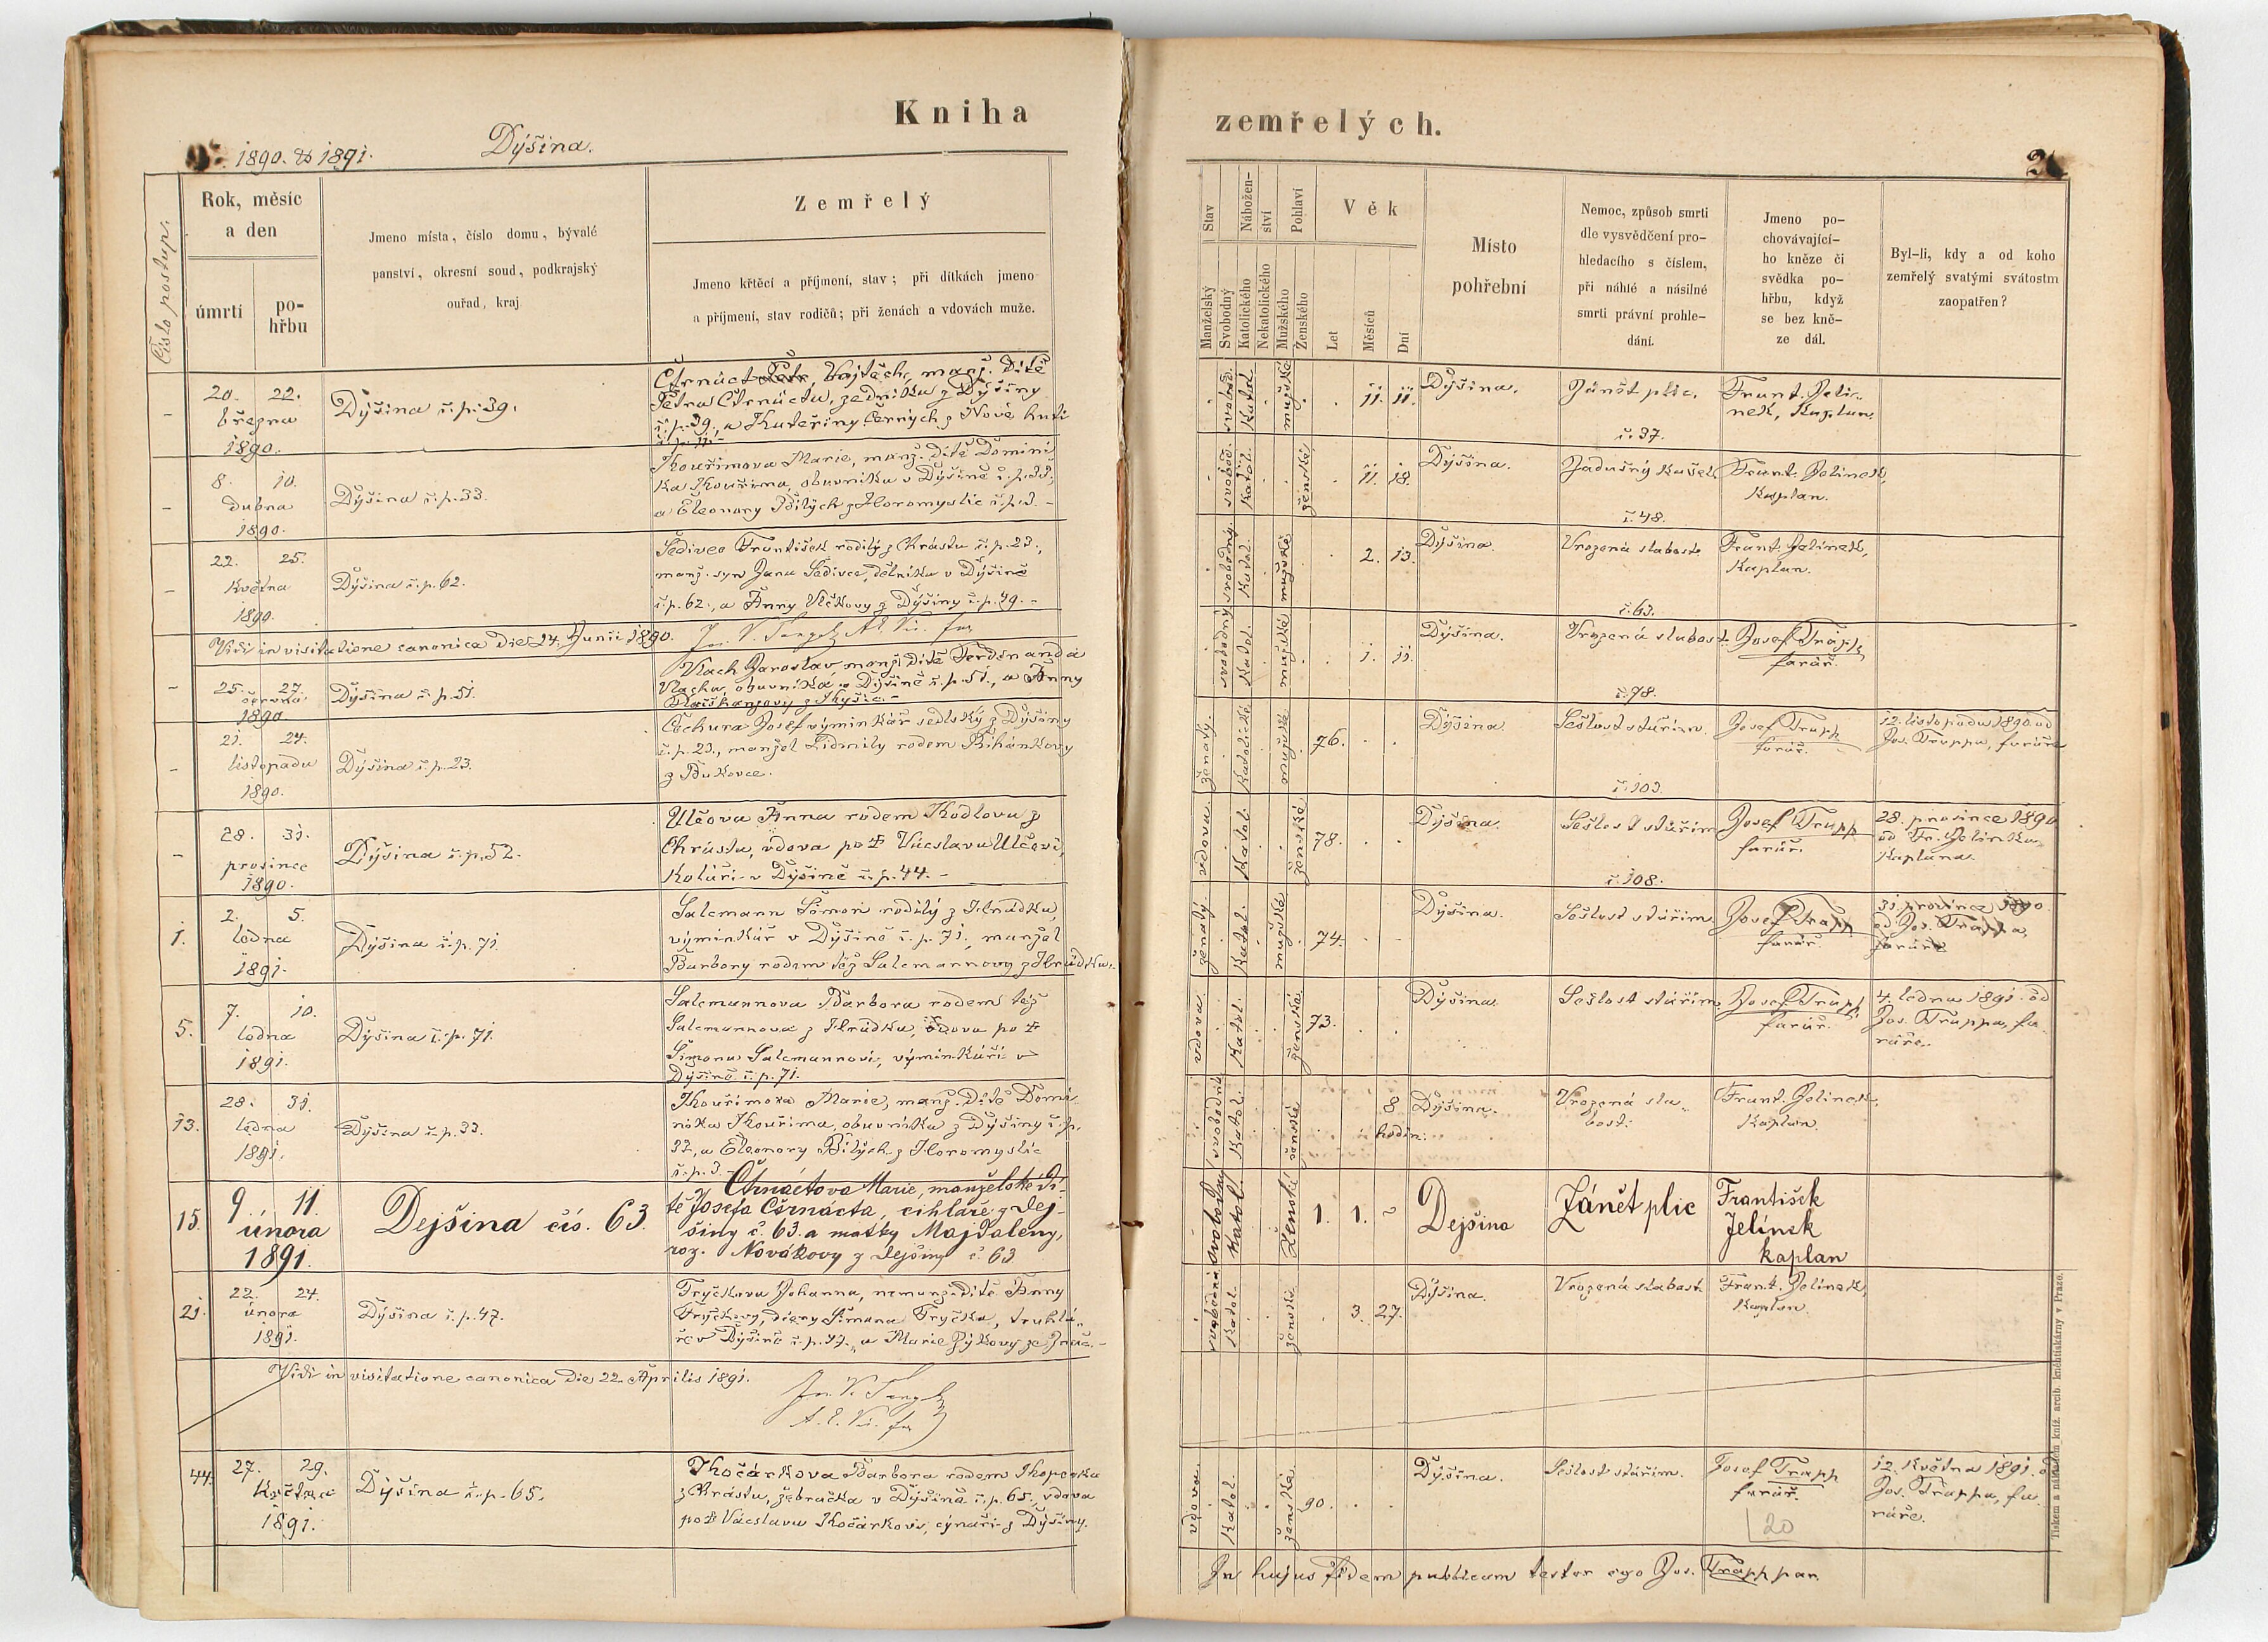 Kniha
zemřelých.
1890. & 1891.
Dýšina.
Číslo postup.
Rok, měsíc
a den
úmrtí
po-
hřbu
Jmeno místa, číslo domu, bývalé
panství, okresní soud, podkrajský
ouřad, kraj
Zemřelý
Jmeno křtěcí a příjmení, stav; při dítkách jmeno
a příjmení, stav rodičů; při ženách a vdovách muže.
Stav
Manželský
Svobodný
Nábožen-
ství
Katolického
Nekatolického
Pohlaví
Mužského
Ženského
Věk
Let
Měsíců
Dní
Místo
pohřební
Nemoc, způsob smrti
dle vysvědčení pro-
hledacího s číslem,
při náhlé a násilné
smrti právní prohle-
dání.
Jmeno po-
chovávající-
ho kněze či
svědka po-
hřbu, když
se bez kně-
ze dál.
Byl-li, kdy a od koho
zemřelý svatými svátostmi
zaopatřen?
20. 22.
března
1890.
Dýšina č.p. 39.
Čtrnáct Petr, Vojtěch, manž. Dítě
Petra Čtrnácta, zedníka z Dýšiny
č.p. 39., a Kateřiny Černých z Nové huti
svobod. Katol. mužské
11. 11.
Dýšina.
Zánět plic.
č. 37.
Frant. Jelí-
nek, Kaplan.
8. 10.
dubna
1890.
Dýšina č.p. 33.
Kouřimova Marie, manž. Dítě Domini
ka Kouřima, obuvníka v Dýšině č.p. 33.,
a Eleonory Bílých z Horomyslic č.p. 3. -
svobod. Katol. ženské
11. 18.
Dýšina.
Zádušný Kašel.
č. 48.
Frant. Jelínek,
Kaplan.
22. 25.
Května
1890.
Dýšina č.p. 62.
Šedivec František rodilý z Chrástu č.p. 23.,
manž. syn Jana Šedivce, dělníka v Dýšině
č.p. 62., a Anny Vlčkovy z Dýšiny č.p. 49. -
svobodný Katol. mužské
2. 13.
Dýšina.
Vrozená slabost.
č. 63.
Frant. Jelínek,
Kaplan.
Vidi in visitatione canonica die 24. Junii 1890.
25. 27.
června
1890
Dýšina č.p. 51.
Vlach Jaroslav, manž. dítě Ferdinanda
Vlacha, obuvníka v Dýšině č.p. 51., a Anny
svobodný Katol. mužské
1. 11.
Dýšina.
Vrozená slabost.
č. 78.
Josef Trapp,
farář.
21. 24.
listopadu
1890.
Dýšina č.p. 23.
Čechura Josef výminkář selský z Dýšiny
č.p. 23., manžel Lidmily rodem Říhánkovy
z Bukovce.
ženatý. Katolické mužské
76.
Dýšina.
Sešlost stářím.
č. 103.
Josef Trapp
farář.
12. listopadu 1890 od
Jos. Trappa, faráře
28. 31.
prosince
1890.
Dýšina č.p. 52.
Ulčova Anna rodem Kodlova z
Chrástu, vdova po † Václavu Ulčovi,
Koláři v Dýšině č.p. 44. -
vdova Katol. ženské
78.
Dýšina.
Sešlost stářím
č. 108.
Josef Trapp
farář.
28. prosince 1890
od Fr. Jelínka,
Kaplana.
1.
2. 5.
ledna
1891.
Dýšina č.p. 71.
Salcmann Šimon rodilý z Hrádku,
výminkář v Dýšině č.p. 71., manžel
Barbory rodem též Salcmannovy z Hrádku.
ženatý. Katol. mužské
74.
Dýšina.
Sešlost stářím.
Josef Trapp
farář.
31. prosince 1890.
od Jos. Trappa,
faráře
5.
7. 10.
ledna
1891.
Dýšina č.p. 71.
Salcmannova Barbora rodem též
Salcmannova z Hrádku, vdova po †
Šimonu Salcmannovi, výminkáři v
Dýšině č.p. 71.
vdova Katol. ženské
73.
Dýšina.
Sešlost stářím.
Josef Trapp,
farář.
4. ledna 1891. od
Jos. Trappa, fa-
ráře.
13.
28. 31.
ledna
1891.
Dýšina č.p. 33.
Kouřimova Marie, manž. Dítě Domi-
nika Kouřima, obuvníka z Dýšiny č.p.
33, a Eleonory Bílých z Horomyslic
č.p. 3.
svobodná Katol. ženské
8
hodin.
Dýšina.
Vrozená sla-
bost.
Frant. Jelínek,
Kaplan.
15.
9. 11.
února
1891.
Dejšina čís. 63.
Čtrnáctova Marie, manželské dí-
tě Josefa Čtrnácta, cihláře z Dej-
šiny č. 63. a matky Majdaleny,
roz. Novákovy z Dejšiny č 63
svobodný Katol. Ženské
1. 1. ~
Dejšina
Zánět plic
František
Jelínek
kaplan
21.
22. 24.
února
1891.
Dýšina č.p. 47.
Tryčkova Johanna, nemanž. dítě Anny
Tryčkovy, dcery Šimona Tryčka, truhlá-
ře v Dýšině č.p. 47., a Marie Zýkovy ze
svobodná Katol. ženské
3. 27.
Dýšina.
Vrozená slabost
Frant. Jelínek,
Kaplan.
Vidi in visitatione canonica die 22. Aprilis 1891.
44.
27. 29.
Května
1891.
Dýšina č.p. 65.
Kočárkova Barbora rodem
z Chrástu, žebračka v Dýšině č.p. 65., vdova
po † Václavu Kočárkovi, z Dýšiny.
vdova Katol. ženské
90.
Dýšina.
Sešlost stářím.
Josef Trapp
farář.
12. Května 1891. od
Jos. Trappa, fa-
ráře.
20
In hujus fidem publicam testor ego Jos. Trapp par.
Tiskem a nákladem kníž. arcib. knihtiskárny v Praze.